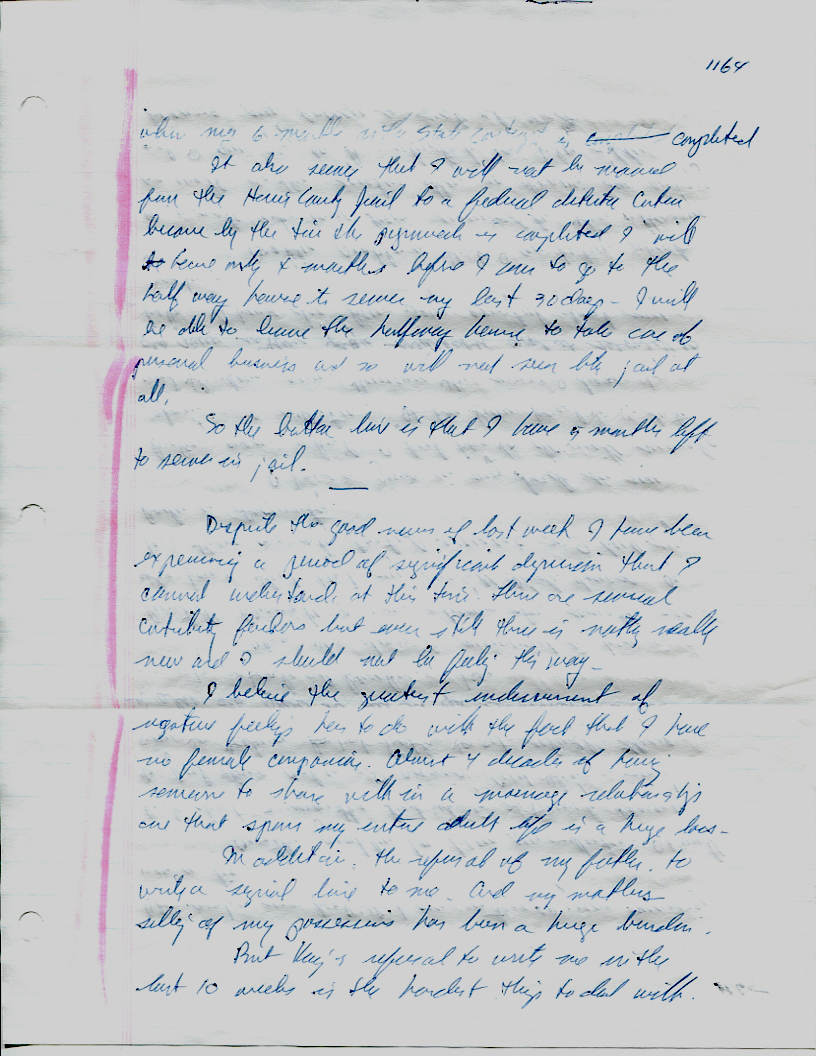 1164
when my 6 months with State is completed
It also seems that I will not be moved
from the Harris County Jail to a federal detention center
because by the time the paperwork is completed I will
have only months before I am to go to the
half way house to serve my last 30 days - I will
be able to leave the halfway house to take care of
personal business and so will not seem like jail at
all.
So the bottom line is that I have 5 months left
to serve in jail.
Despite the good news of last week I have been
experiencing a period of significant depression that I
cannot understand at this time. There are several
contributing factors but even still there is nothing really
new and I should not be feeling this way -
I believe the greatest of
negative feelings has to do with the fact that I have
no female companion. Almost 4 decades of having
someone to share with in a marriage relationship
one that spans my entire adult life is a huge loss -
In addition, the refusal of my father to
write a signal line to me. And my mothers
selling of my possessions has been a huge burden.
But refusal to write me in the
last 10 weeks is the hardest thing to deal with.